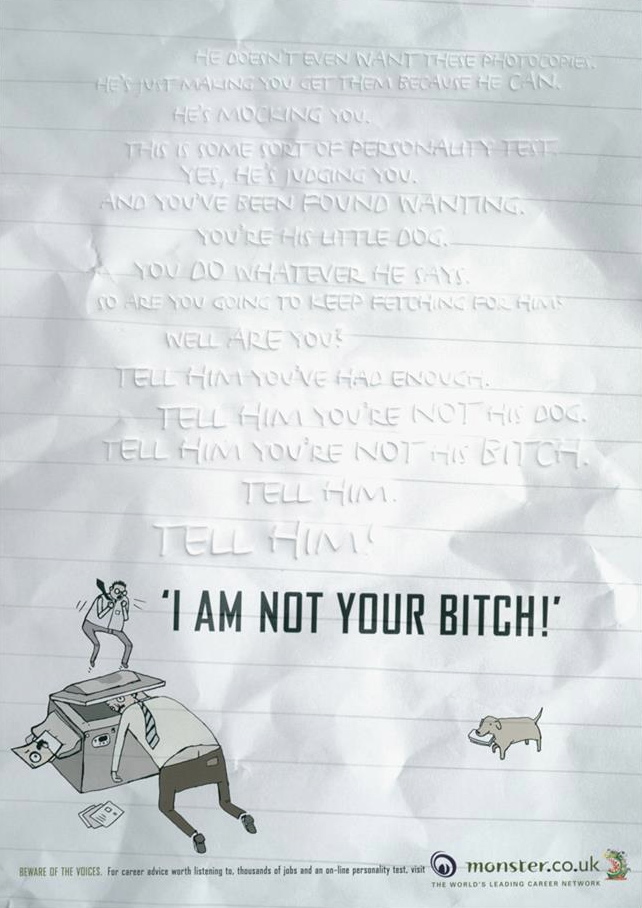 HE DOESN'T EVEN WANT THESE PHOTOCOPIES.
HE'S JUST MAKING YOU GET THEM BECAUSE HE CAN.
HE'S MOCKING YOU.
THIS IS SOME SORT OF PERSONALITY TEST.
YES, HE'S JUDGING YOU.
AND YOU'VE BEEN FOUND WANTING.
YOU'RE HIS LITTLE DOG.
YOU DO WHATEVER HE SAYS.
SO ARE YOU GOING TO KEEP FETCHING FOR HIM?
WELL ARE YOU?
TELL HIM YOU'VE HAD ENOUGH.
TELL HIM YOU'RE NOT HIS DOG.
TELL HIM YOU'RE NOT HIS BITCH.
TELL HIM.
TELL HIM!
'I AM NOT YOUR BITCH!'
BEWARE OF THE VOICES. For career advice worth listening to, thousands of jobs and an on-line personality test, visit
monster.co.uk
THE WORLD'S LEADING CAREER NETWORK